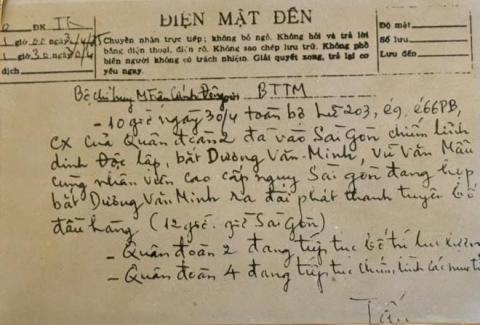 ĐIỆN MẬT ĐẾN
ĐK
1 giờ 00 ngày 30/4/75
1 giờ 30 ngày 30/4
dịch
Chuyển nhân trực tiếp; không bỏ ngỏ. Không hỏi và trả lời
bằng điện thoại, điện rõ. Không sao chép lưu trữ. Không phổ
biến người không có trách nhiệm. Giải quyết xong, trả lại cơ
yếu ngay.
Độ mật
Số lưu
Lưu đến
Bộ chỉ huy Mặt trận cánh Đông gửi BTTM
- 10 giờ ngày 30/4 toàn bộ Lữ 203, e9, e66PB,
cx của Quân đoàn 2 đã vào Sài Gòn chiếm lĩnh
dinh Độc lập, bắt Dương Văn Minh, Vũ Văn Mẫu
cùng nhân viên cao cấp ngụy Sài gòn đang họp
bắt Dương Văn Minh ra đài phát thanh tuyên bố
đầu hàng (12 giờ. giờ Sài Gòn)
- Quân đoàn 2 đang tiếp tục bố trí lực lượng
- Quân đoàn 4 đang tiếp tục chiếm lĩnh các mục
Tấn